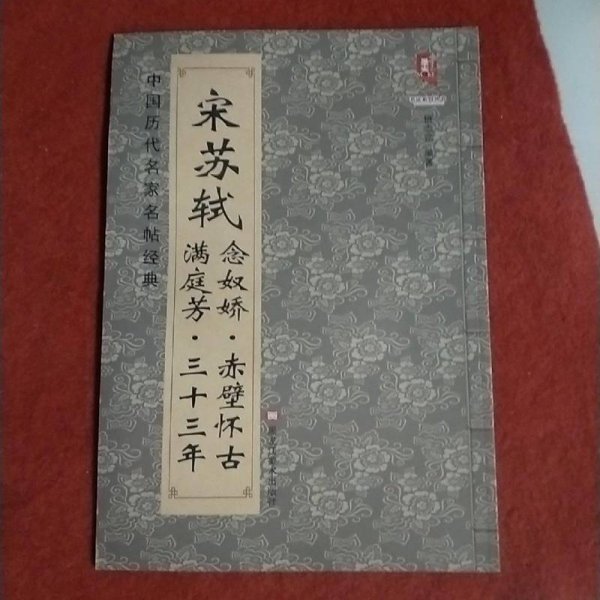 中国历代名家名帖经典
宋苏轼
念奴娇·赤壁怀古
满庭芳·三十三年